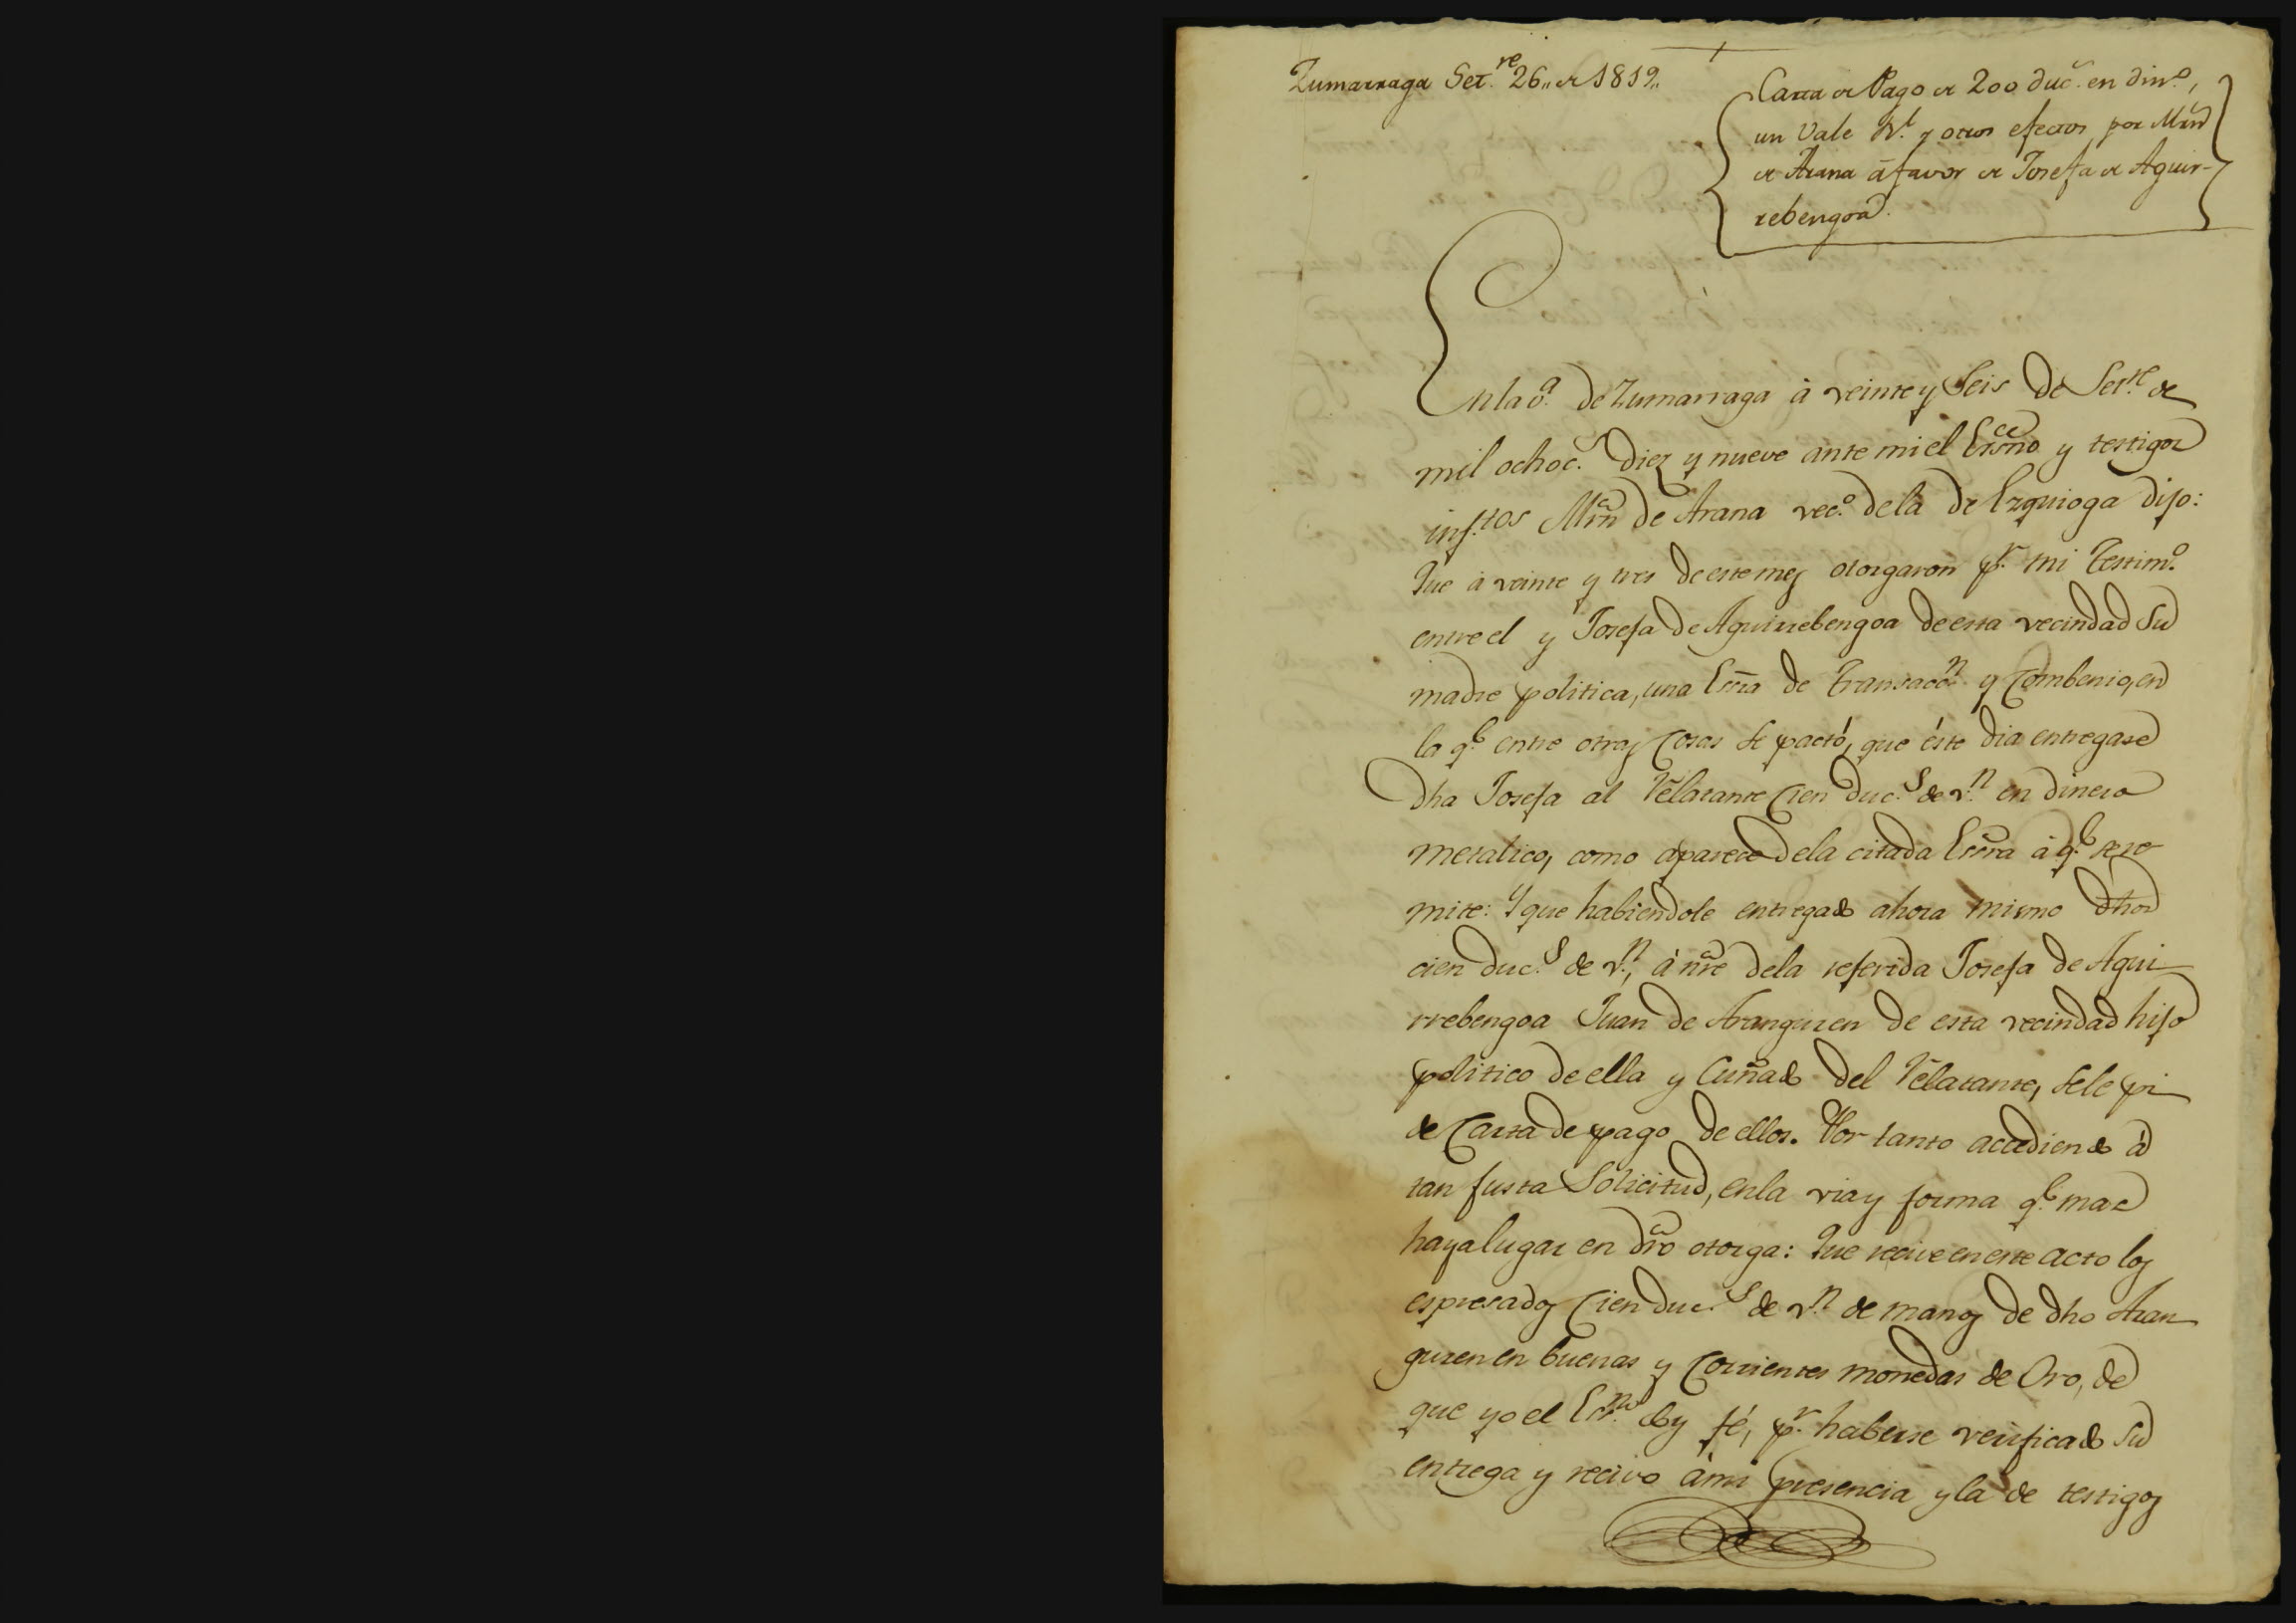 Zumarraga Set.re 26,, de 1819,,
Carta de Pago de 200 duc.s en din.o,
un Vale R.l y otros efectos por Mrn
de Arana á favor de Josefa de Aguir-
rebengoa.
En la v.a de Zumarraga à veinte y Seis de Set.re de
mil ochoc.s diez y nueve ante mi el Escno y testigos
inf.tos Mrn de Arana vec.o de la de Ezquioga dijo:
Que à veinte y tres de este mes otorgaron p.r mi Testim.o
entre el y Josefa de Aguirrebengoa de esta vecindad su
madre politica, una Escra de Transacc.n y Combenio, en
la q.e entre otras Cosas se pactó, que éste dia entregase
dha Josefa al Relatante Cien duc.s de v.n en dinero
metalico, como aparece de la citada Escra à q.e se re
mite: Y que habiendole entregado ahora mismo dhos
cien duc.s de v.n, á nre de la referida Josefa de Agui
rrebengoa Juan de Aranguren de esta vecindad hijo
politico de ella y Cuñado del Relatante, se le pi
de Carta de pago de ellos. Por tanto accediendo á
tan justa Solicitud, en la via y forma q.e mas
haya lugar en dro otorga: Que recive en este acto los
espresados Cien duc.s de v.n de manos de dho Aran
guren en buenas y Corrientes monedas de Oro, de
que yo el Es.no doy fé, p.r haberse verificado su
entrega y recivo à mi presencia y la de testigos